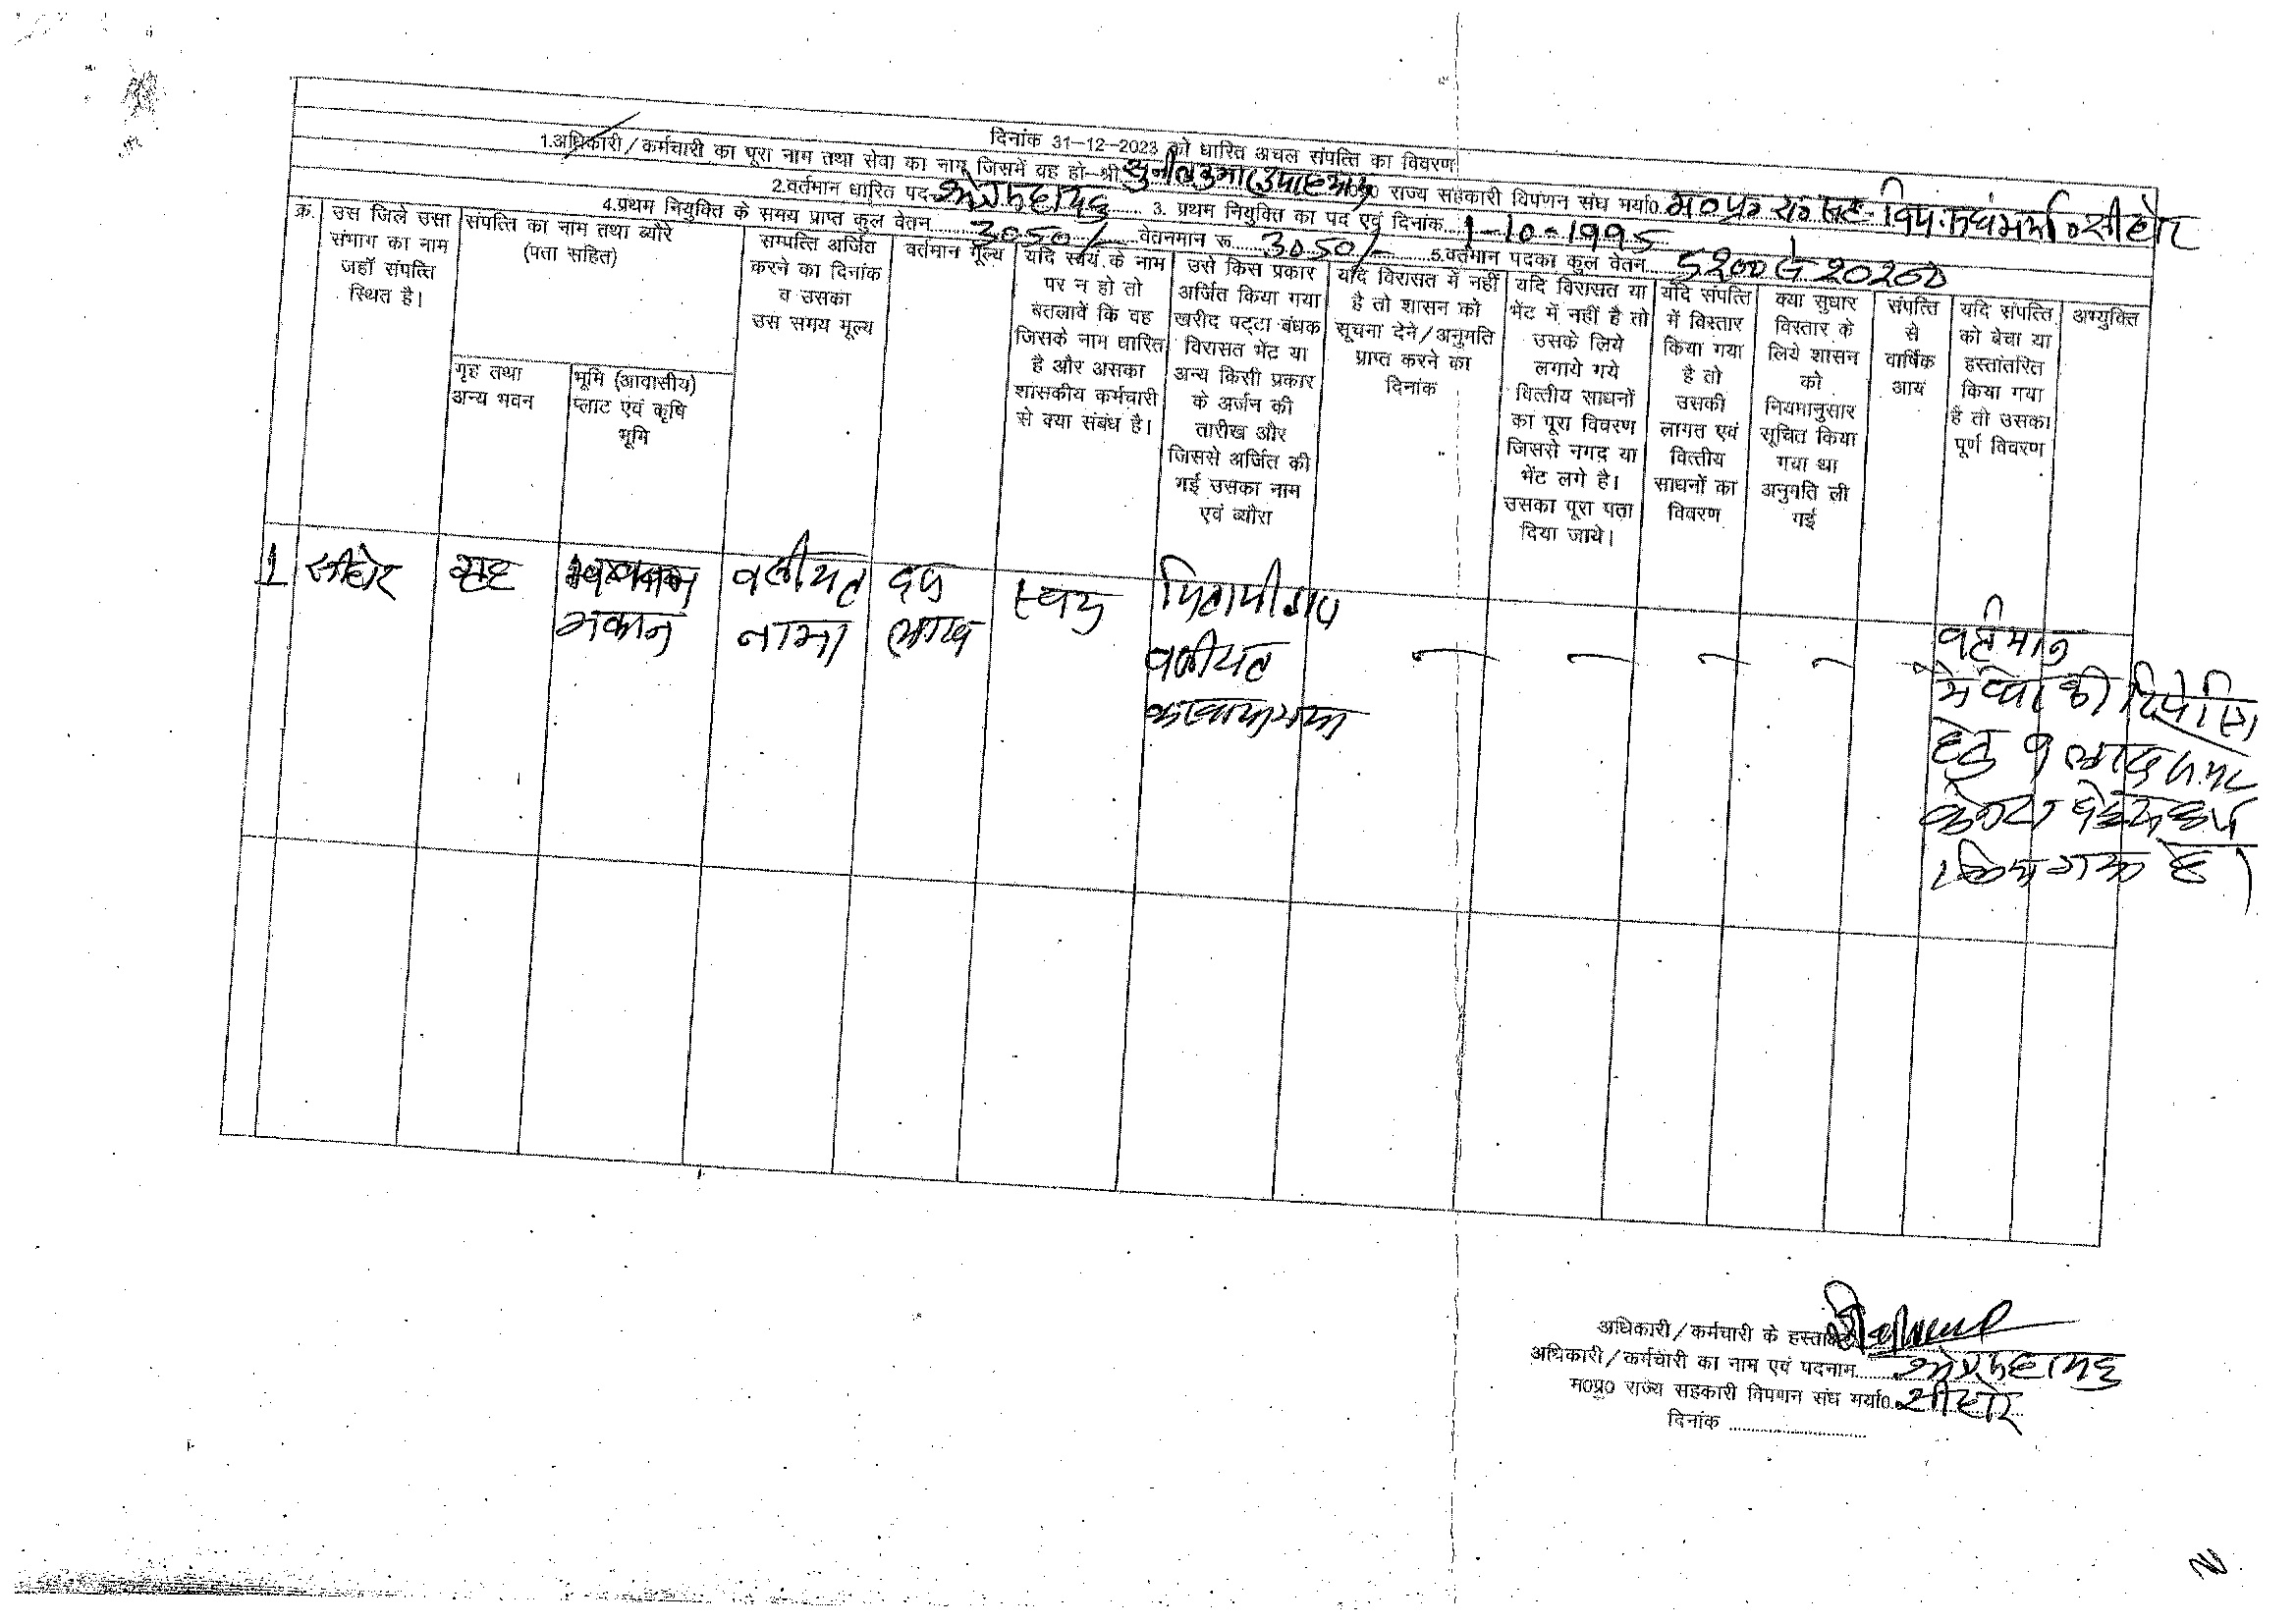 दिनांक 31-12-2023 को धारित अचल संपत्ति का विवरण
1.अधिकारी/कर्मचारी का पूरा नाम तथा सेवा का नाम जिसमें वह हो-श्री सुनील कुमार उपाध्याय म0प्र0 राज्य सहकारी विपणन संघ मर्या0 म०प्र० रा० सह. विप. संघ मर्या० सीहोर
2.वर्तमान धारित पद 3. प्रथम नियुक्ति का पद एवं दिनांक 1-10-1995
4.प्रथम नियुक्ति के समय प्राप्त कुल वेतन 3050/- वेतनमान रू 3050/- 5.वर्तमान पदका कुल वेतन 5200 से 20200
क्र.
उस जिले उसा
संभाग का नाम
जहाँ संपत्ति
स्थित है।
संपत्ति का नाम तथा ब्यौरे
(पता सहित)
गृह तथा
अन्य भवन
भूमि (आवासीय)
प्लाट एवं कृषि
भूमि
सम्पत्ति अर्जित
करने का दिनांक
व उसका
उस समय मूल्य
वर्तमान मूल्य
यदि स्वयं के नाम
पर न हो तो
बतलावें कि वह
जिसके नाम धारित
है और असका
शासकीय कर्मचारी
से क्या संबंध है।
उसे किस प्रकार
अर्जित किया गया
खरीद पट्टा बंधक
विरासत भेंट या
अन्य किसी प्रकार
के अर्जन की
तारीख और
जिससे अर्जित की
गई उसका नाम
एवं ब्यौरा
यदि विरासत में नहीं
है तो शासन को
सूचना देने/अनुमति
प्राप्त करने का
दिनांक
यदि विरासत या
भेंट में नहीं है तो
उसके लिये
लगाये गये
वित्तीय साधनों
का पूरा विवरण
जिससे नगद या
भेंट लगे है।
उसका पूरा पता
दिया जाये।
यदि संपत्ति
में विस्तार
किया गया
है तो
उसकी
लागत एवं
वित्तीय
साधनों का
विवरण
क्या सुधार
विस्तार के
लिये शासन
को
नियमानुसार
सूचित किया
गया था
अनुमति ली
गई
संपत्ति
से
वार्षिक
आय
यदि संपत्ति
को बेचा या
हस्तांतरित
किया गया
है तो उसका
पूर्ण विवरण
अभ्युक्ति
1 सीहोर गृह
मकान
वसीयत
नामा
दस
लाख
स्वयं
पिताजी द्वारा
वसीयत
करवाया गया
— — — —
वर्तमान
में
हेतु
है।
अधिकारी/कर्मचारी के हस्ताक्षर
अधिकारी/कर्मचारी का नाम एवं पदनाम
म0प्र0 राज्य सहकारी विपणन संघ मर्या0 सीहोर
दिनांक